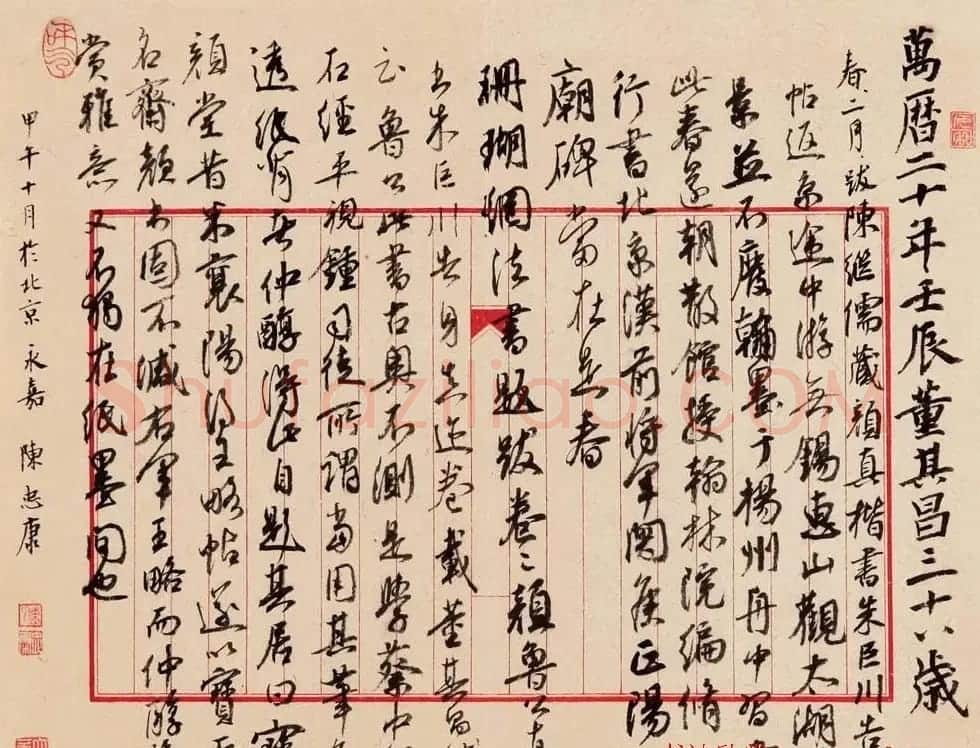 萬曆二十年壬辰董其昌三十八歲
春二月跋陳繼儒藏顏真楷書朱巨川告
帖返京途中游無錫惠山觀太湖
景并不廢翰墨于楊州舟中習
此春還朝散館授翰林院編脩
行書北京漢前將軍関侯正陽
廟碑當在是春
珊瑚網法書題跋卷二顏魯公
書朱巨川告身真迹卷載董其昌
云魯公此書古奧不測是學蔡中
石經平視鍾司徒所謂當用其筆
透紙背者仲醇得此自題其居曰寶
顏堂昔米襄陽得王略帖遂以寶
名齋顏書固不減右軍王略而仲醇
賞雅意又不獨在紙墨間也
甲午十月於北京 永嘉 陳忠康
Shufaziliao.COM